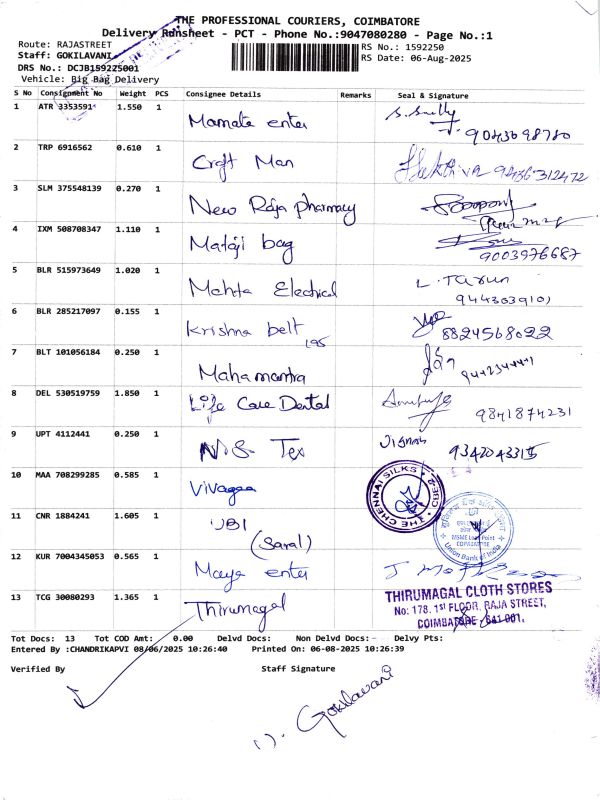 THE PROFESSIONAL COURIERS, COIMBATORE
Delivery Runsheet - PCT - Phone No.:9047080280 - Page No.:1
Route: RAJASTREET
RS No.: 1592250
Staff: GOKILAVANI
RS Date: 06-Aug-2025
DRS No.: DCJB159225001
Vehicle: Big Bag Delivery
S No Consignment No Weight PCS Consignee Details Remarks Seal & Signature
1 ATR 3353591 1.550 1 Mamata enter 9043698780
2 TRP 6916562 0.610 1 Craft Man 9486312472
3 SLM 375548139 0.270 1 New Raja pharmacy
4 IXM 508708347 1.110 1 Mataji bag 9003976687
5 BLR 515973649 1.020 1 Mehta Electrical L. Tarun 9443039101
6 BLR 285217097 0.155 1 Krishna belt 195 8824568022
7 BLT 101056184 0.250 1 Mahamantra
8 DEL 530519759 1.850 1 Life Care Dental 9841874231
9 UPT 4112441 0.250 1 Tex
10 MAA 708299285 0.585 1 Vivagaa THE CHENNAI SILKS CBE-2
11 CNR 1884241 1.605 1 UBI (Saral)
MSME Loan Point
COIMBATORE
Union Bank of India
12 KUR 7004345053 0.565 1 Maya enter
13 TCG 30080293 1.365 1 Thirumagal
THIRUMAGAL CLOTH STORES
No: 178, 1st FLOOR, RAJA STREET,
COIMBATORE - 641 001.
Tot Docs: 13 Tot COD Amt: 0.00 Delvd Docs: Non Delvd Docs: Delvy Pts:
Entered By :CHANDRIKAPVI 08/06/2025 10:26:40 Printed On: 06-08-2025 10:26:39
Verified By Staff Signature
Gokilavani